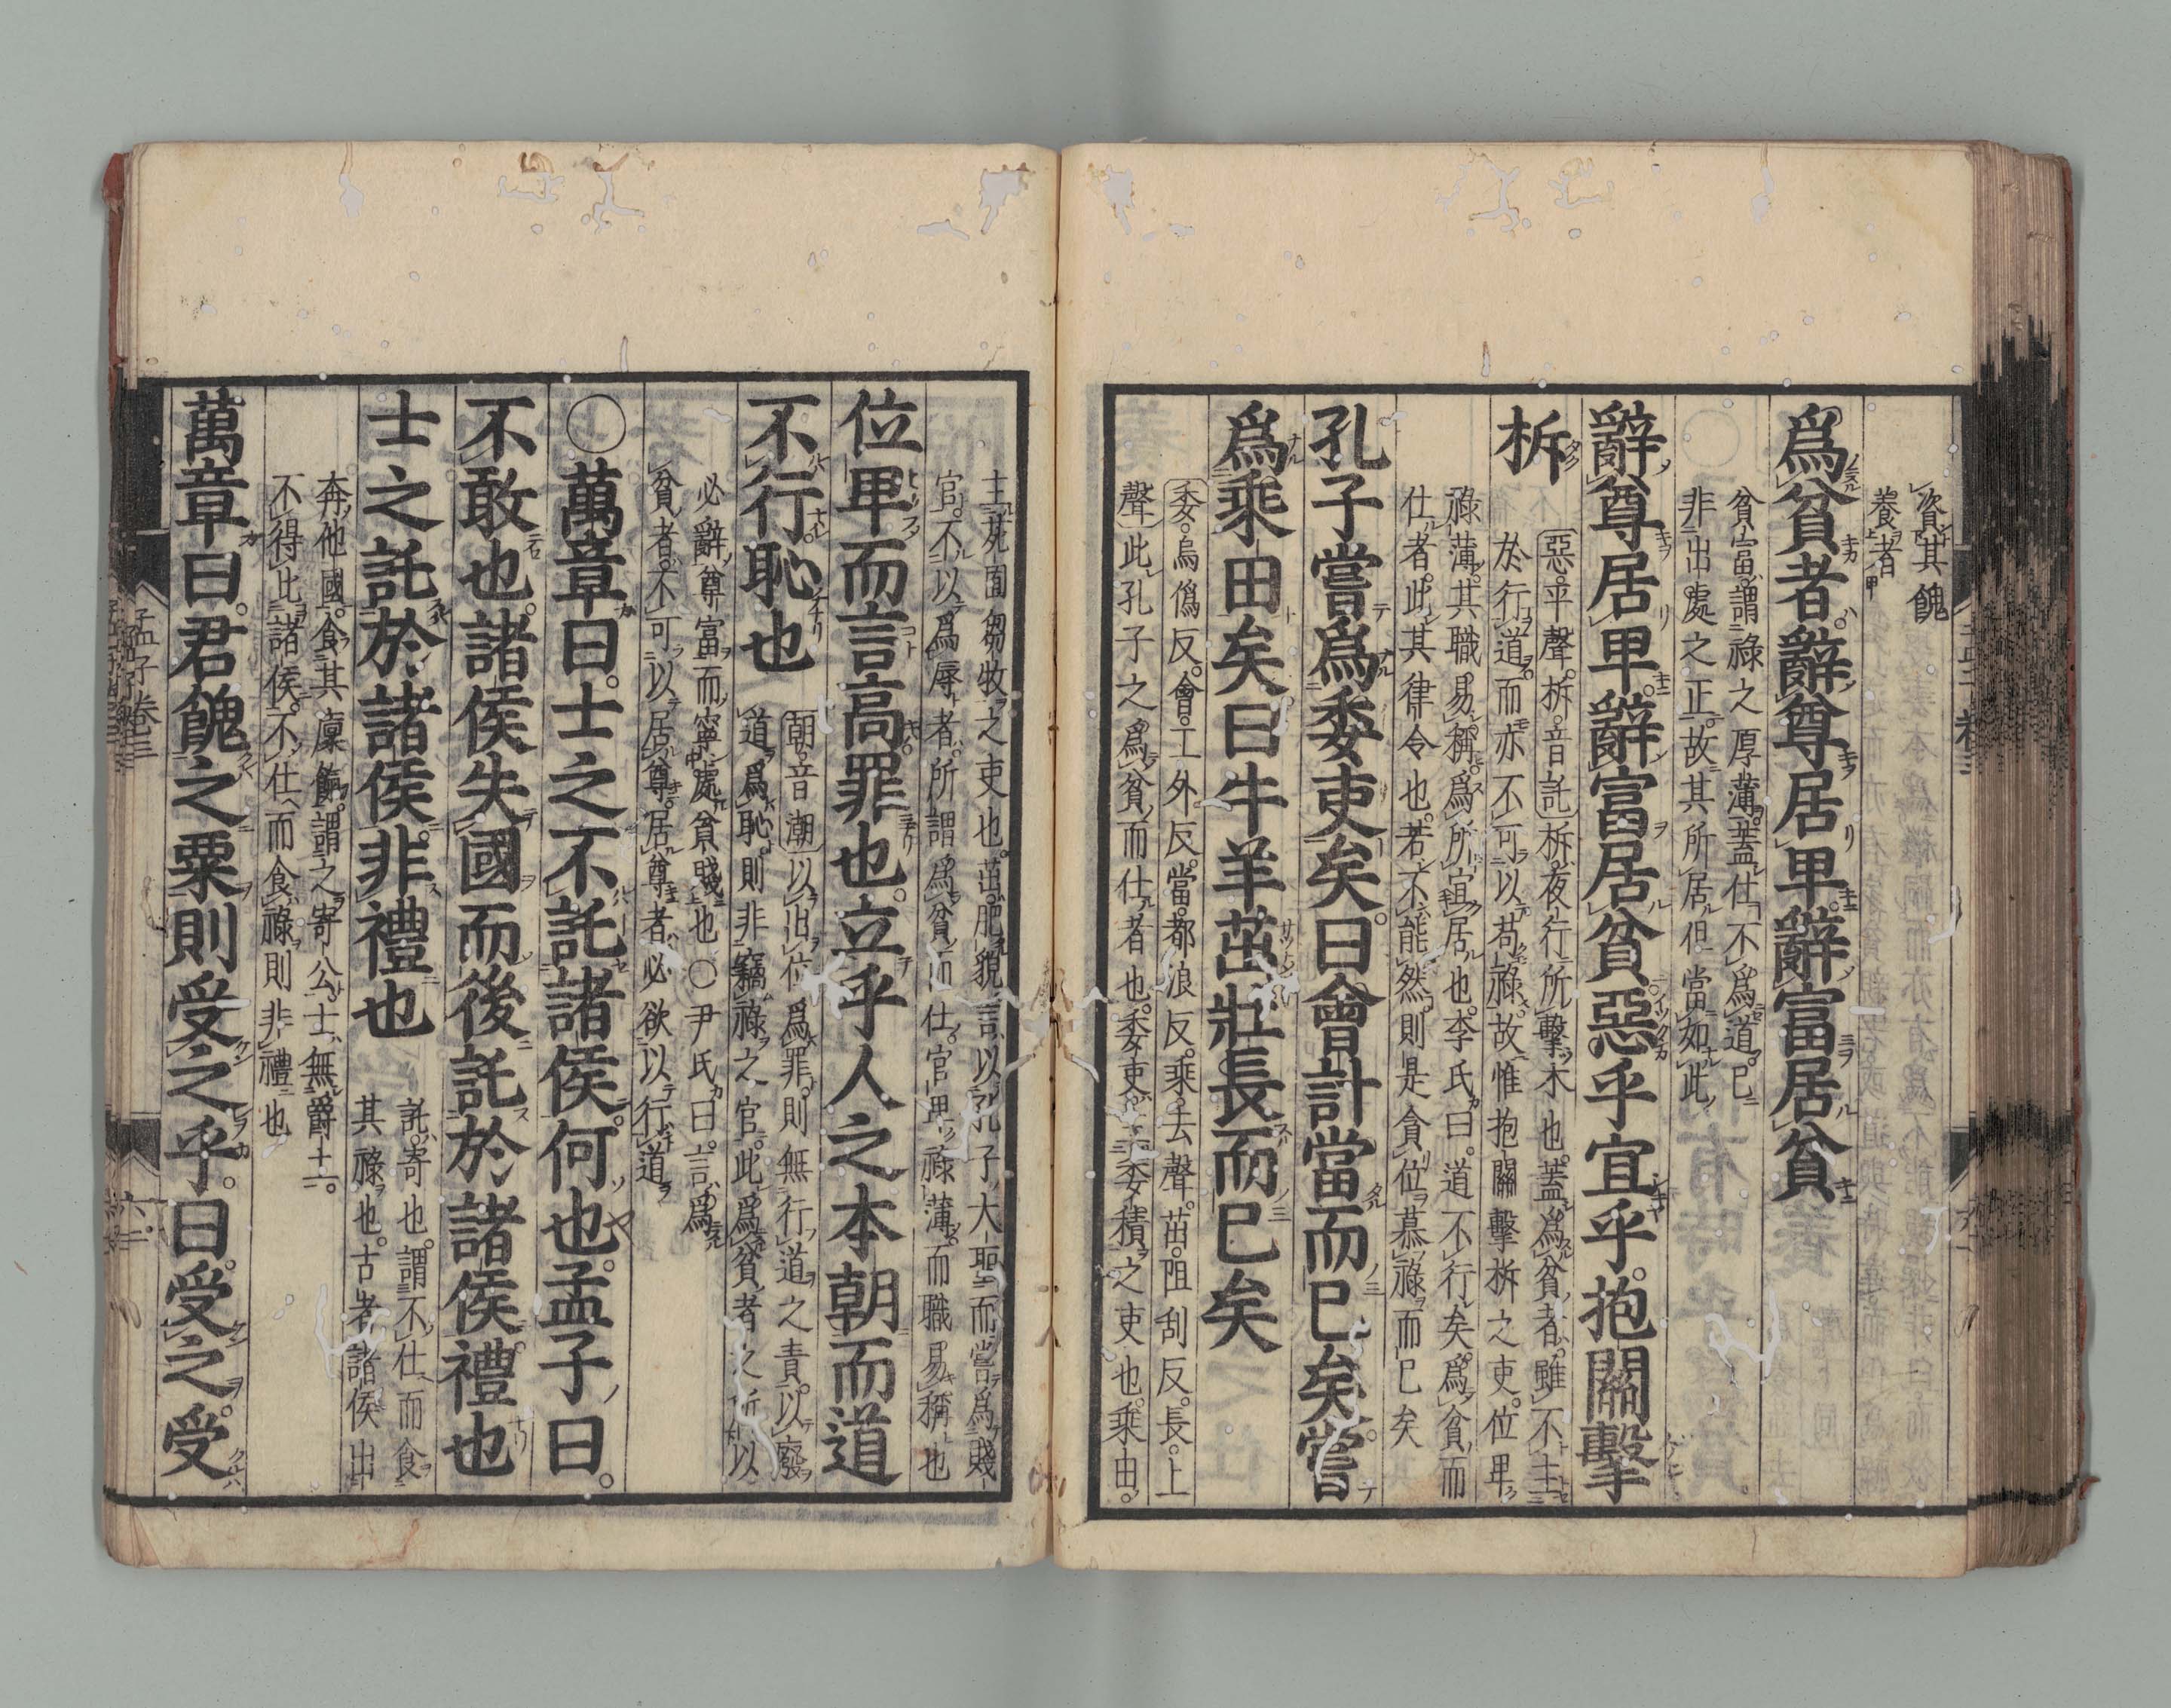 資其餽
養者
爲貧者辭尊居卑辭富居貧
貧富謂祿之厚薄蓋仕不爲道已
非出處之正故其所居但當如此
辭尊居卑辭富居貧惡乎宜乎抱關擊
柝
惡平聲。柝音託柝夜行所擊木也。蓋爲貧者雖不主
於行道。而亦不可以苟祿。故惟抱關擊柝之吏。位卑
祿薄。其職易稱。爲所宜居也。李氏曰。道不行矣。爲貧而
仕者。此其律令也。若不能然。則是貪位慕祿而已矣
孔子嘗爲委吏矣。曰會計當而已矣嘗
爲乘田矣曰牛羊茁壯長而已矣
委。烏僞反。會。工外反。當。都浪反。乘去聲。茁。阻刮反。長。上
聲此孔子之爲貧而仕者也。委吏主委積之吏也。乘田。
主苑囿芻牧之吏也。茁。肥貌言以孔子大聖而嘗爲賤
官。不以爲辱者。所謂爲貧而仕。官卑祿薄。而職易稱也
位卑而言高罪也。立乎人之本朝而道
不行恥也
朝。音潮以出位爲罪。則無行道之責。以廢
道爲恥。則非竊祿之官。此爲貧者之所以
必辭尊富而寧處貧賤也〇尹氏曰。言爲
貧者。不可以居尊。居尊者必欲以行道
〇萬章曰。士之不託諸侯何也。孟子曰。
不敢也。諸侯失國而後託於諸侯禮也
士之託於諸侯。非禮也
託。寄也。謂不仕而食
其祿也。古者諸侯出
奔他國。食其廩餼。謂之寄公。士無爵土。
不得比諸侯。不仕而食祿。則非禮也
萬章曰。君餽之粟則受之乎。曰。受之。受
孟子卷三